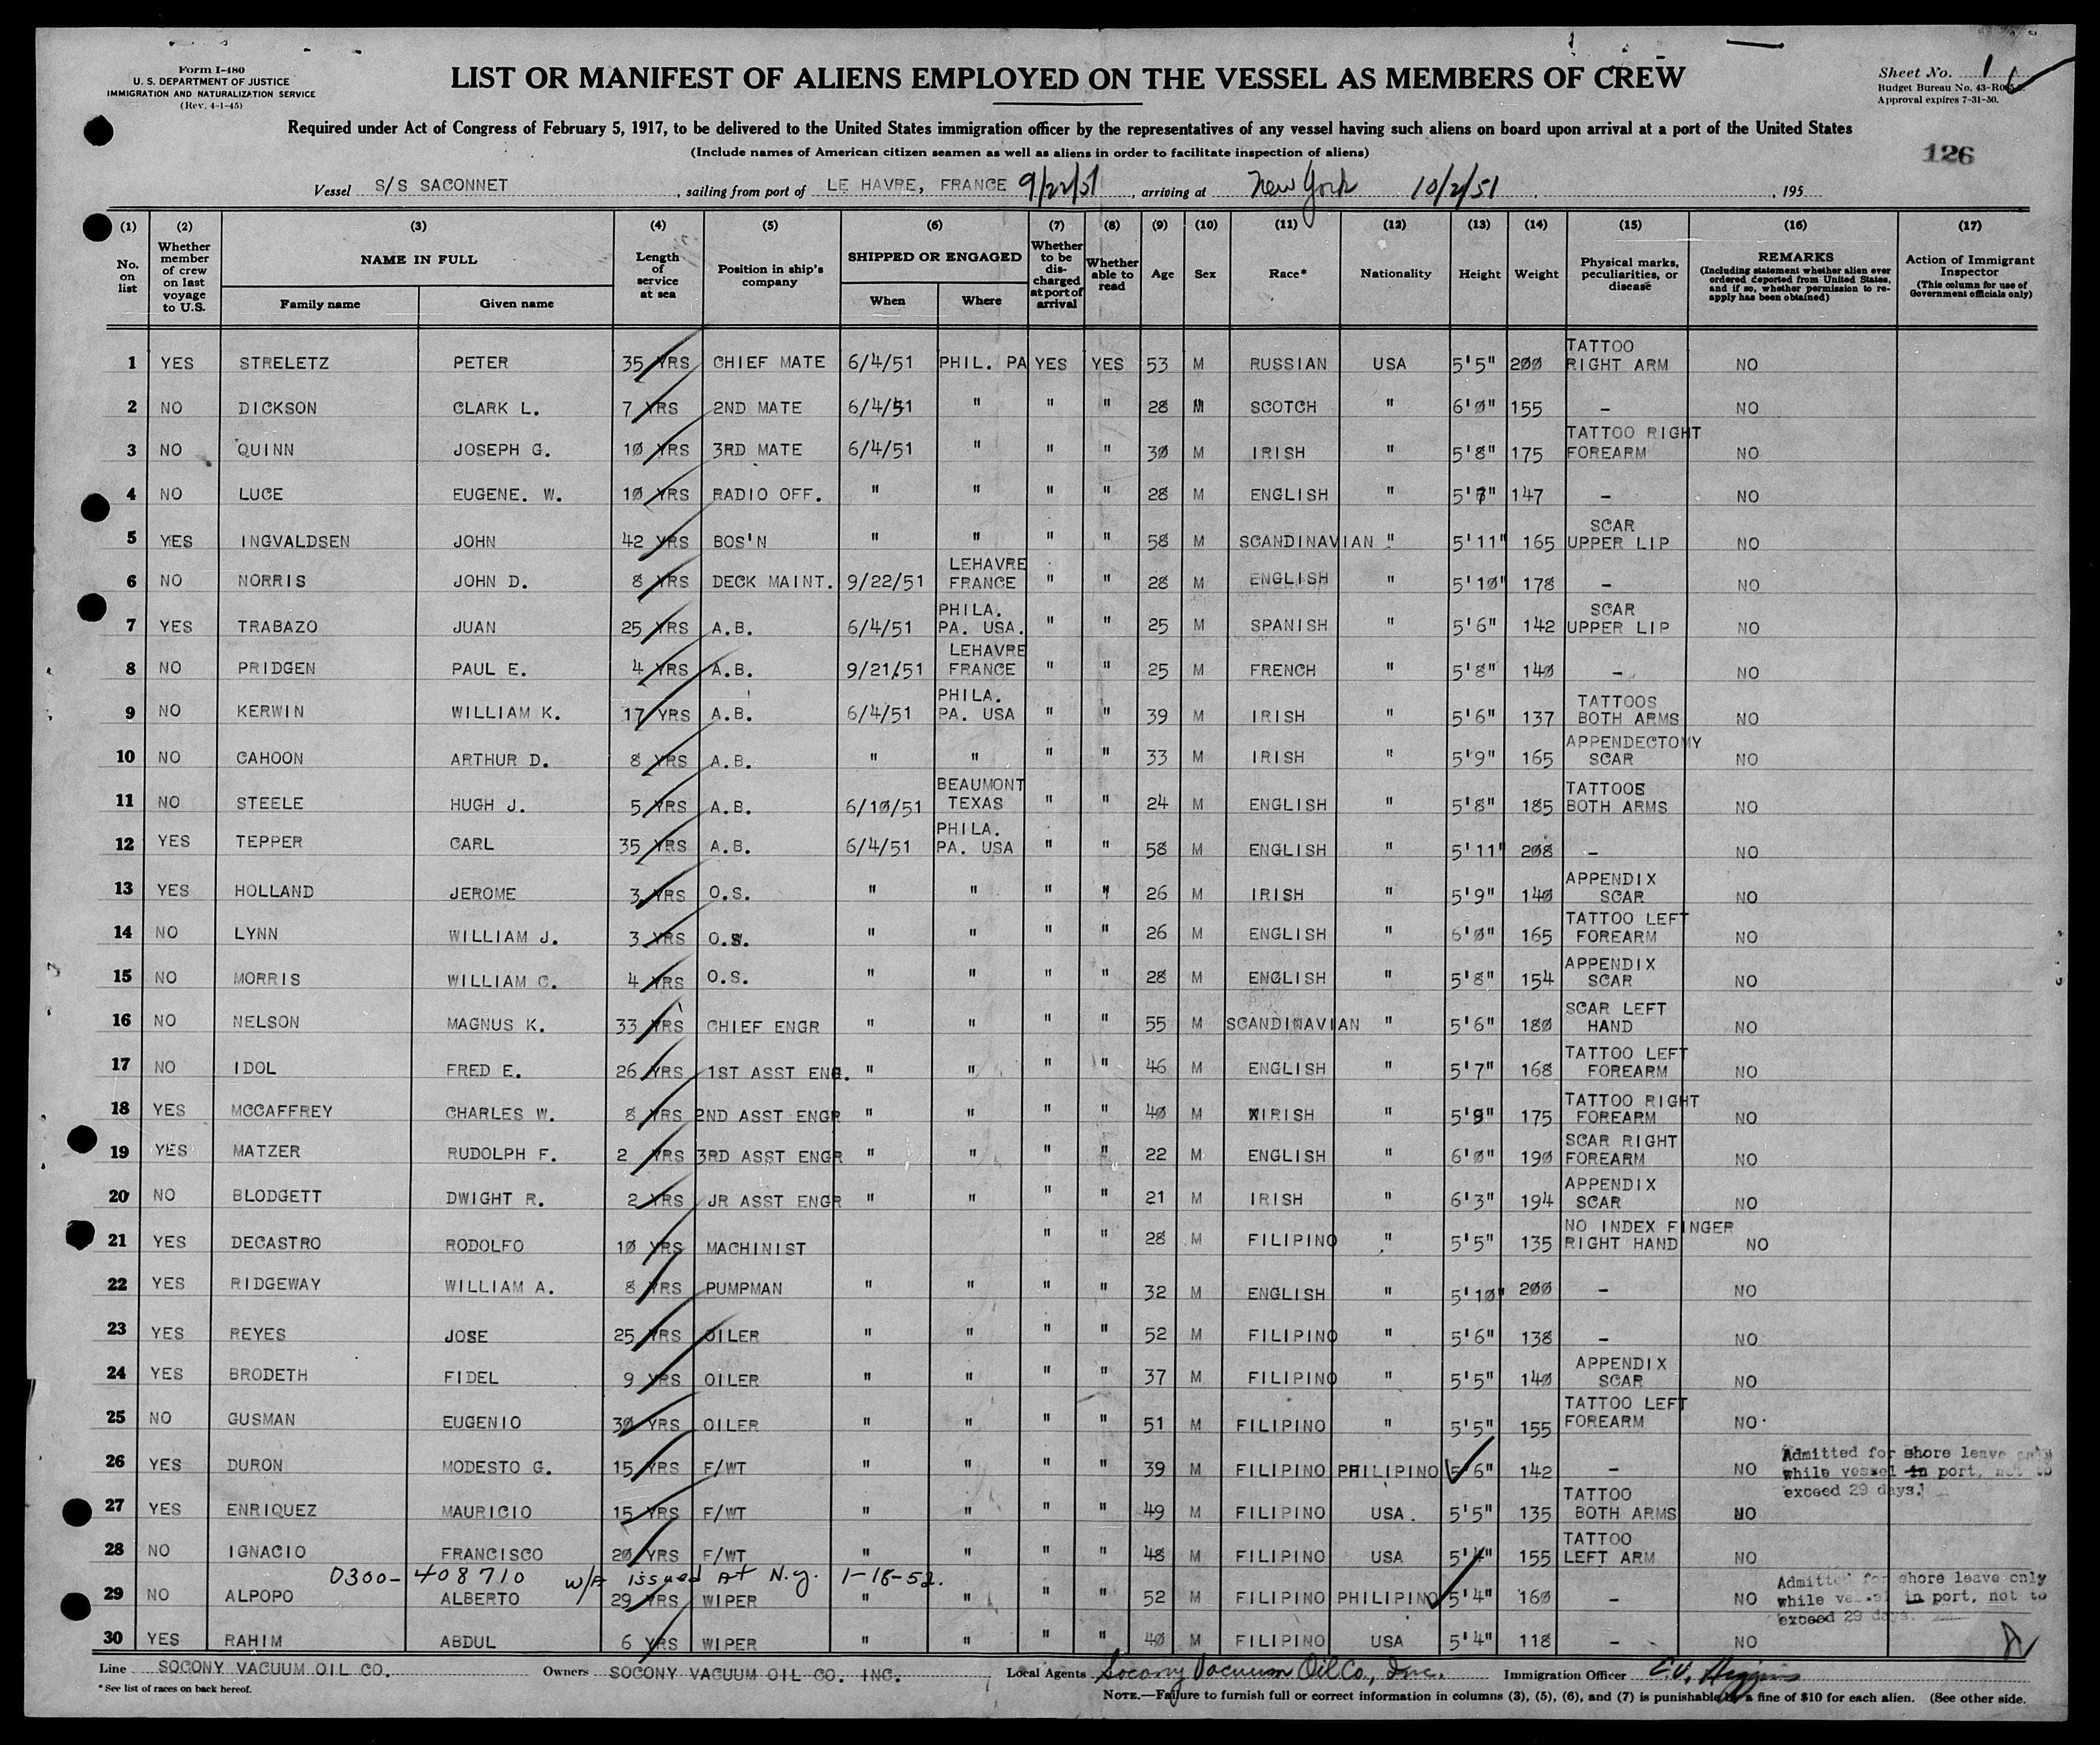 Form I-480
U. S. DEPARTMENT OF JUSTICE
IMMIGRATION AND NATURALIZATION SERVICE
(Rev. 4-1-45)
LIST OR MANIFEST OF ALIENS EMPLOYED ON THE VESSEL AS MEMBERS OF CREW
Sheet No. 1
Budget Bureau No. 43-R0
Approval expires 7-31-50.
Required under Act of Congress of February 5, 1917, to be delivered to the United States immigration officer by the representatives of any vessel having such aliens on board upon arrival at a port of the United States
(Include names of American citizen seamen as well as aliens in order to facilitate inspection of aliens)
126
Vessel S/S SACONNET, sailing from port of LE HAVRE, FRANCE 9/22/51, arriving at New York 10/2/51, 195
(1) No. on list
(2) Whether member of crew on last voyage to U.S.
(3) NAME IN FULL Family name Given name
(4) Length of service at sea
(5) Position in ship's company
(6) SHIPPED OR ENGAGED When Where
(7) Whether to be discharged at port of arrival
(8) Whether able to read
(9) Age
(10) Sex
(11) Race*
(12) Nationality
(13) Height
(14) Weight
(15) Physical marks, peculiarities, or disease
(16) REMARKS (Including statement whether alien ever ordered deported from United States, and if so, whether permission to re-apply has been obtained)
(17) Action of Immigrant Inspector (This column for use of Government officials only)
1 YES STRELETZ PETER 35 YRS CHIEF MATE 6/4/51 PHIL. PA YES YES 53 M RUSSIAN USA 5'5" 200 TATTOO RIGHT ARM NO
2 NO DICKSON CLARK L. 7 YRS 2ND MATE 6/4/51 " " " 28 M SCOTCH " 6'0" 155 - NO
3 NO QUINN JOSEPH G. 10 YRS 3RD MATE 6/4/51 " " " 30 M IRISH " 5'8" 175 TATTOO RIGHT FOREARM NO
4 NO LUCE EUGENE. W. 10 YRS RADIO OFF. " " " " 28 M ENGLISH " 5'7" 147 - NO
5 YES INGVALDSEN JOHN 42 YRS BOS'N " " " " 58 M SCANDINAVIAN " 5'11" 165 SCAR UPPER LIP NO
6 NO NORRIS JOHN D. 8 YRS DECK MAINT. 9/22/51 LEHAVRE FRANCE " " 28 M ENGLISH " 5'10" 178 - NO
7 YES TRABAZO JUAN 25 YRS A.B. 6/4/51 PHILA. PA. USA. " " 25 M SPANISH " 5'6" 142 SCAR UPPER LIP NO
8 NO PRIDGEN PAUL E. 4 YRS A.B. 9/21/51 LEHAVRE FRANCE " " 25 M FRENCH " 5'8" 140 - NO
9 NO KERWIN WILLIAM K. 17 YRS A.B. 6/4/51 PHILA. PA. USA " " 39 M IRISH " 5'6" 137 TATTOOS BOTH ARMS NO
10 NO CAHOON ARTHUR D. 8 YRS A.B. " " " " 33 M IRISH " 5'9" 165 APPENDECTOMY SCAR NO
11 NO STEELE HUGH J. 5 YRS A.B. 6/10/51 BEAUMONT TEXAS " " 24 M ENGLISH " 5'8" 185 TATTOOS BOTH ARMS NO
12 YES TEPPER CARL 35 YRS A.B. 6/4/51 PHILA. PA. USA " " 58 M ENGLISH " 5'11" 208 - NO
13 YES HOLLAND JEROME 3 YRS O.S. " " " " 26 M IRISH " 5'9" 140 APPENDIX SCAR NO
14 NO LYNN WILLIAM J. 3 YRS O.S. " " " " 26 M ENGLISH " 6'0" 165 TATTOO LEFT FOREARM NO
15 NO MORRIS WILLIAM C. 4 YRS O.S. " " " " 28 M ENGLISH " 5'8" 154 APPENDIX SCAR NO
16 NO NELSON MAGNUS K. 33 YRS CHIEF ENGR " " " " 55 M SCANDINAVIAN " 5'6" 180 SCAR LEFT HAND NO
17 NO IDOL FRED E. 26 YRS 1ST ASST ENG. " " " " 46 M ENGLISH " 5'7" 168 TATTOO LEFT FOREARM NO
18 YES MCCAFFREY CHARLES W. 8 YRS 2ND ASST ENGR " " " " 40 M IRISH " 5'9" 175 TATTOO RIGHT FOREARM NO
19 YES MATZER RUDOLPH F. 2 YRS 3RD ASST ENGR " " " " 22 M ENGLISH " 6'0" 190 SCAR RIGHT FOREARM NO
20 NO BLODGETT DWIGHT R. 2 YRS JR ASST ENGR " " " " 21 M IRISH " 6'3" 194 APPENDIX SCAR NO
21 YES DECASTRO RODOLFO 10 YRS MACHINIST " " 28 M FILIPINO " 5'5" 135 NO INDEX FINGER RIGHT HAND NO
22 YES RIDGEWAY WILLIAM A. 8 YRS PUMPMAN " " " " 32 M ENGLISH " 5'10" 200 - NO
23 YES REYES JOSE 25 YRS OILER " " " " 52 M FILIPINO " 5'6" 138 - NO
24 YES BRODETH FIDEL 9 YRS OILER " " " " 37 M FILIPINO " 5'5" 140 APPENDIX SCAR NO
25 NO GUSMAN EUGENIO 30 YRS OILER " " " " 51 M FILIPINO " 5'5" 155 TATTOO LEFT FOREARM NO
26 YES DURON MODESTO G. 15 YRS F/WT " " " " 39 M FILIPINO PHILIPINO 5'6" 142 - NO Admitted for shore leave only while vessel in port, not to exceed 29 days.
27 YES ENRIQUEZ MAURICIO 15 YRS F/WT " " " " 49 M FILIPINO USA. 5'5" 135 TATTOO BOTH ARMS NO
28 NO IGNACIO FRANCISCO 20 YRS F/WT " " " " 48 M FILIPINO USA 5'4" 155 TATTOO LEFT ARM NO
0300-408710 W/A issued At N.Y. 1-18-52.
29 NO ALPOPO ALBERTO 29 YRS WIPER " " " " 52 M FILIPINO PHILIPINO 5'4" 160 - NO Admitted for shore leave only while vessel in port, not to exceed 29 days.
30 YES RAHIM ABDUL 6 YRS WIPER " " " " 40 M FILIPINO USA 5'4" 118 - NO
Line SOCONY VACUUM OIL CO. Owners SOCONY VACUUM OIL CO. INC. Local Agents Socony Vacuum Oil Co., Inc. Immigration Officer E.V. Higgins
*See list of races on back hereof.
NOTE.—Failure to furnish full or correct information in columns (3), (5), (6), and (7) is punishable by a fine of $10 for each alien. (See other side.